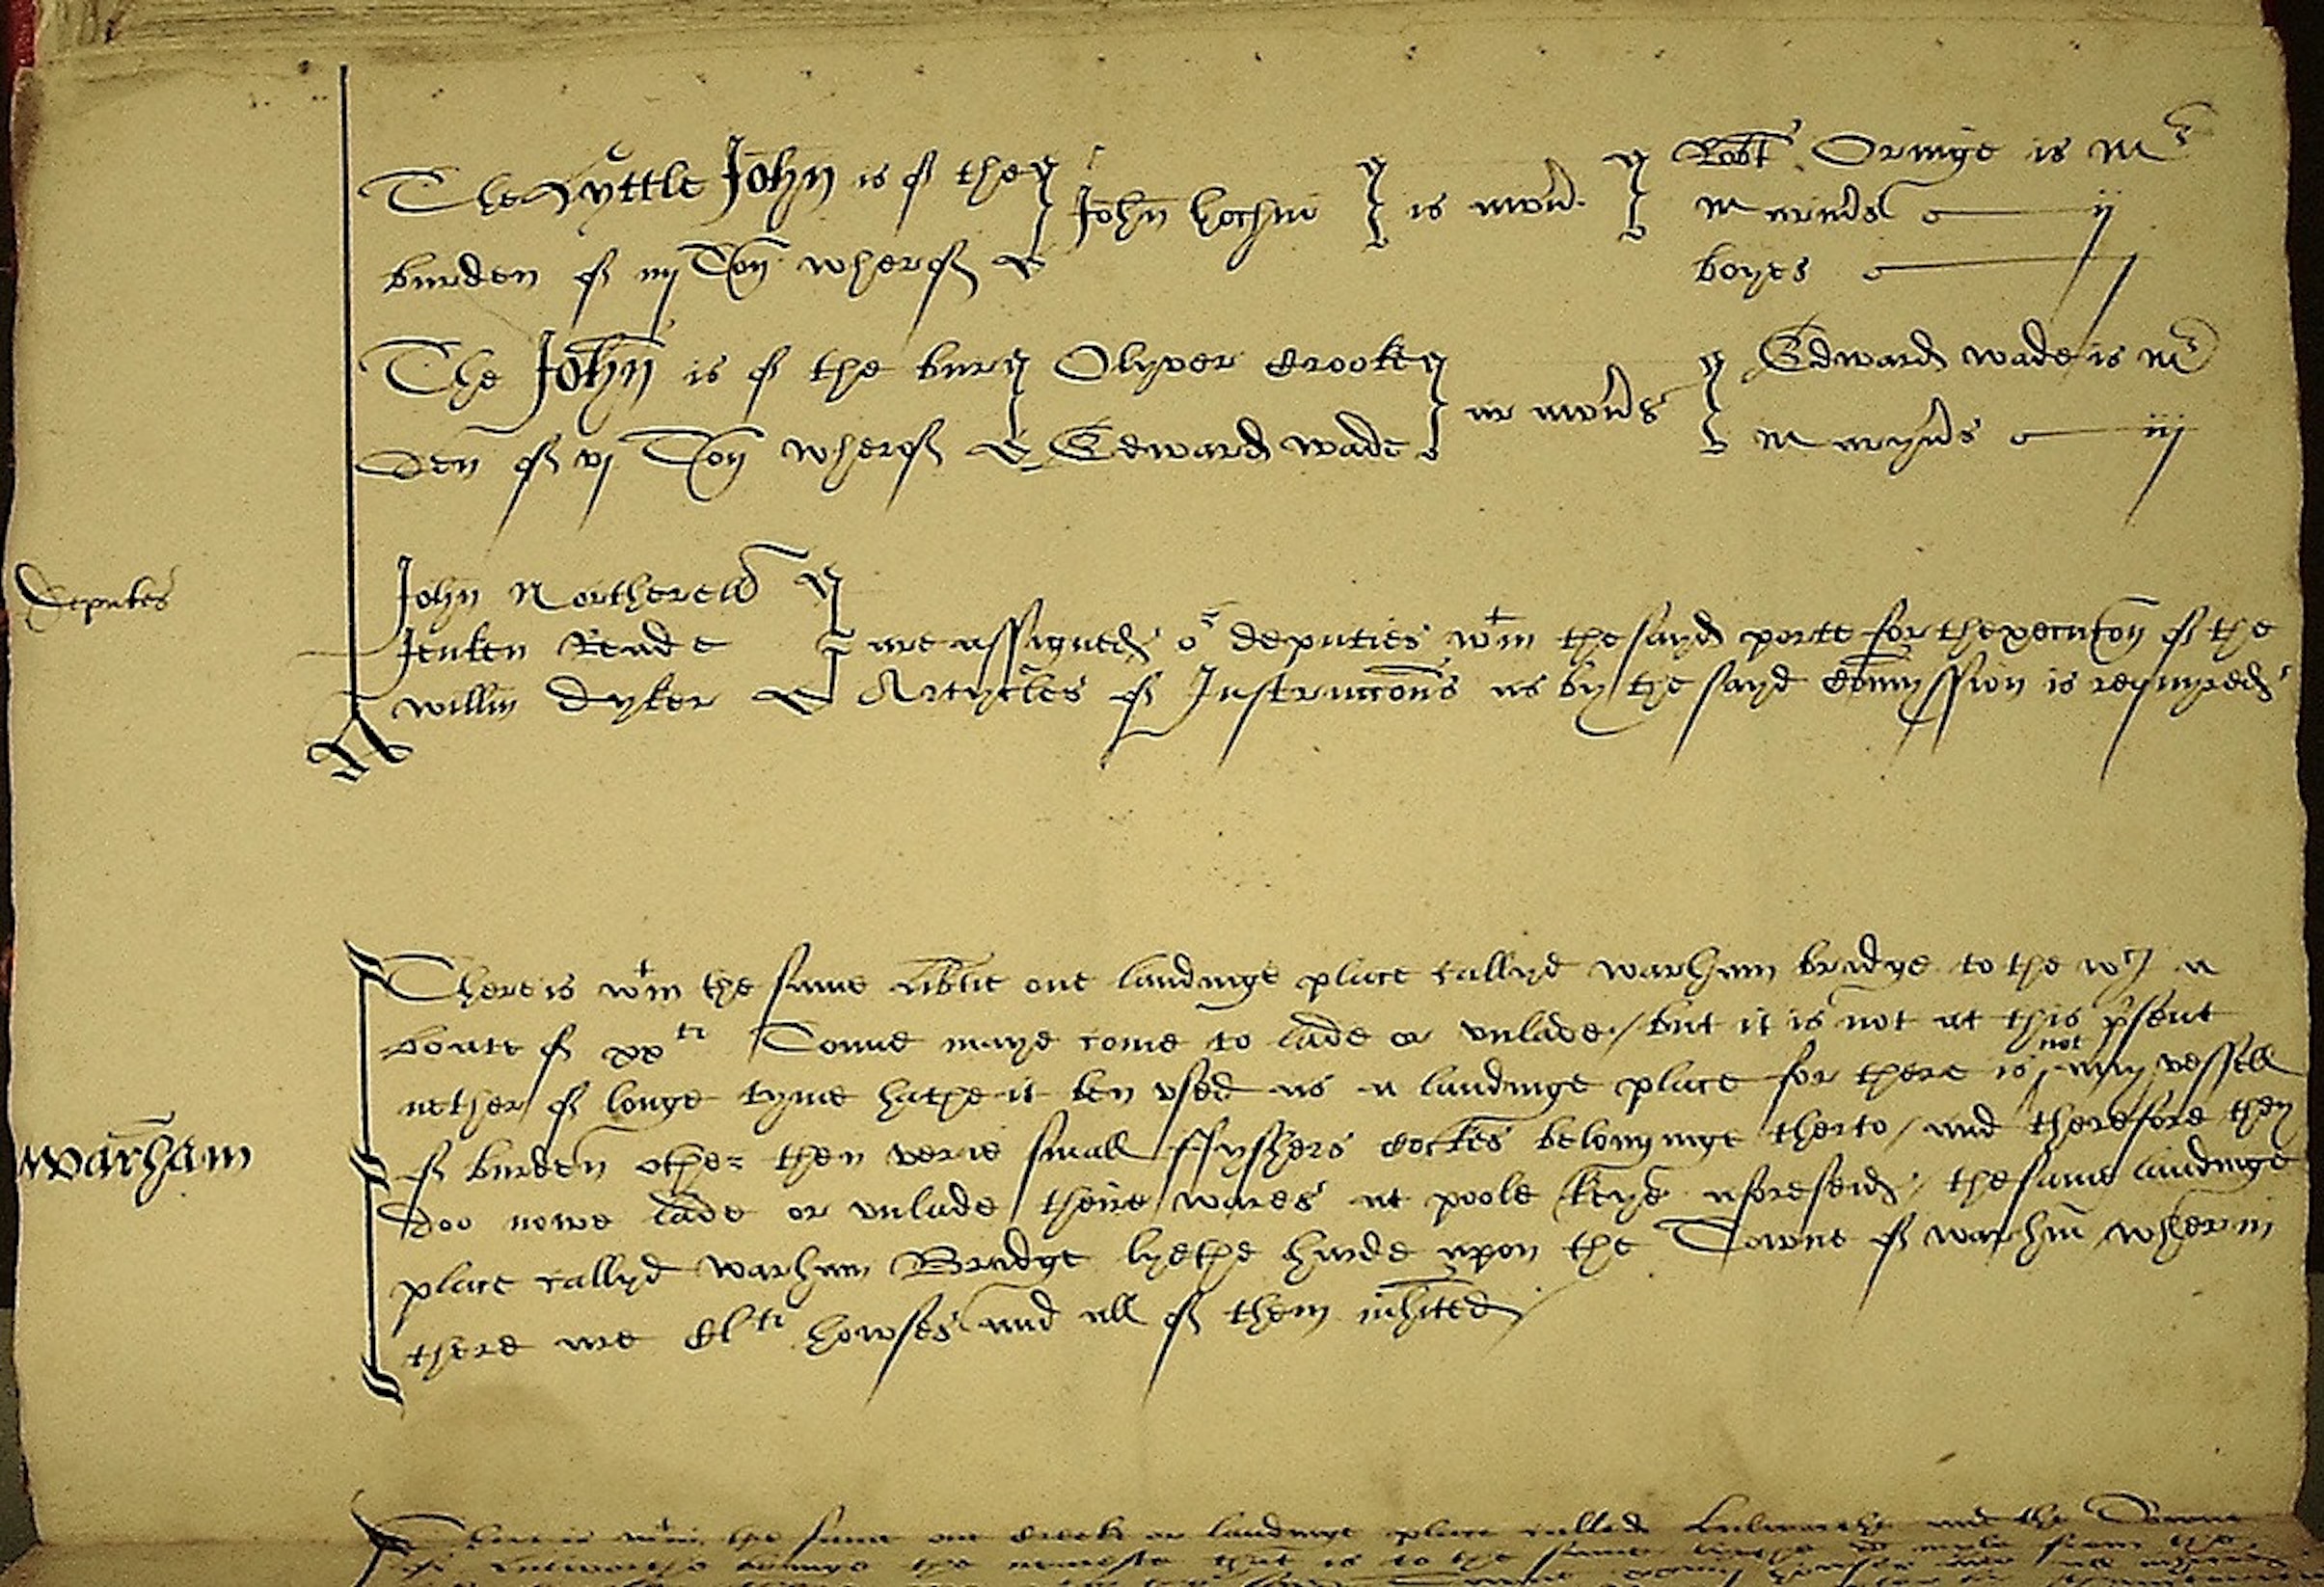 The Lyttle John is of the
burden of iiij Ton wherof
John
is own̄
Robt Oringe is Mr
Marin̄ds ij
boyes j
The John is of the bur
den of vj Ton wherof
Olyver Crooke
Edward wade
ar own̄s
Edward wade is Mr
Maryn̄s iij
Deputes
John Northerell
Jenken Reade
Willm Dyker
are assigned or deputies wtin the sayd porte for thexecucōn of the
Artycles of Instruccōns as by the sayd Com̄yssion is requyred
Warham
There is wtin the same one landinge place callyd warham bridge to the wch a
boate of xxti Tonne maye come to lade or vnlade / but it is not at this p̄sent
nether of longe tyme hathe it ben vsed as a landinge place for there is not any vessell
of burden other then verie small ffysshers cockes belonginge therto / and therefore they
doo nowe lade or vnlade theire wares at poole keye aforeseid / the same landinge
place callyd warham Bridge lyethe harde upon the Towne of warham wherin
there are Clti howses and all of them inhīted
There is wtin the same one Creeke or landinge place called Lulworthe and the Towne